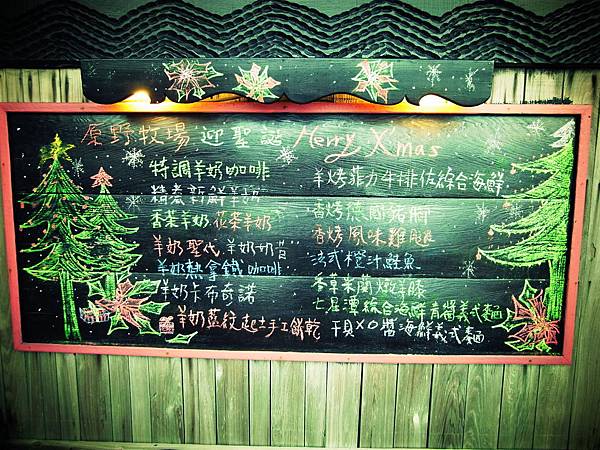 原野牧場 迎聖誕 Merry X'mas
特調羊奶咖啡
精煮新鮮羊奶
香茶羊奶 花茶羊奶
羊奶聖代 羊奶奶昔
羊奶熱拿鐵咖啡
羊奶卡布奇諾
羊奶藍紋起士手工餅乾
羊烤菲力牛排佐綜合海鮮
香烤德國豬腳
香烤風味雞腿
法式橙汁鮭魚
香草米蘭燉羊膝
七星潭綜合海鮮青醬義式麵
干貝XO醬海鮮義式麵